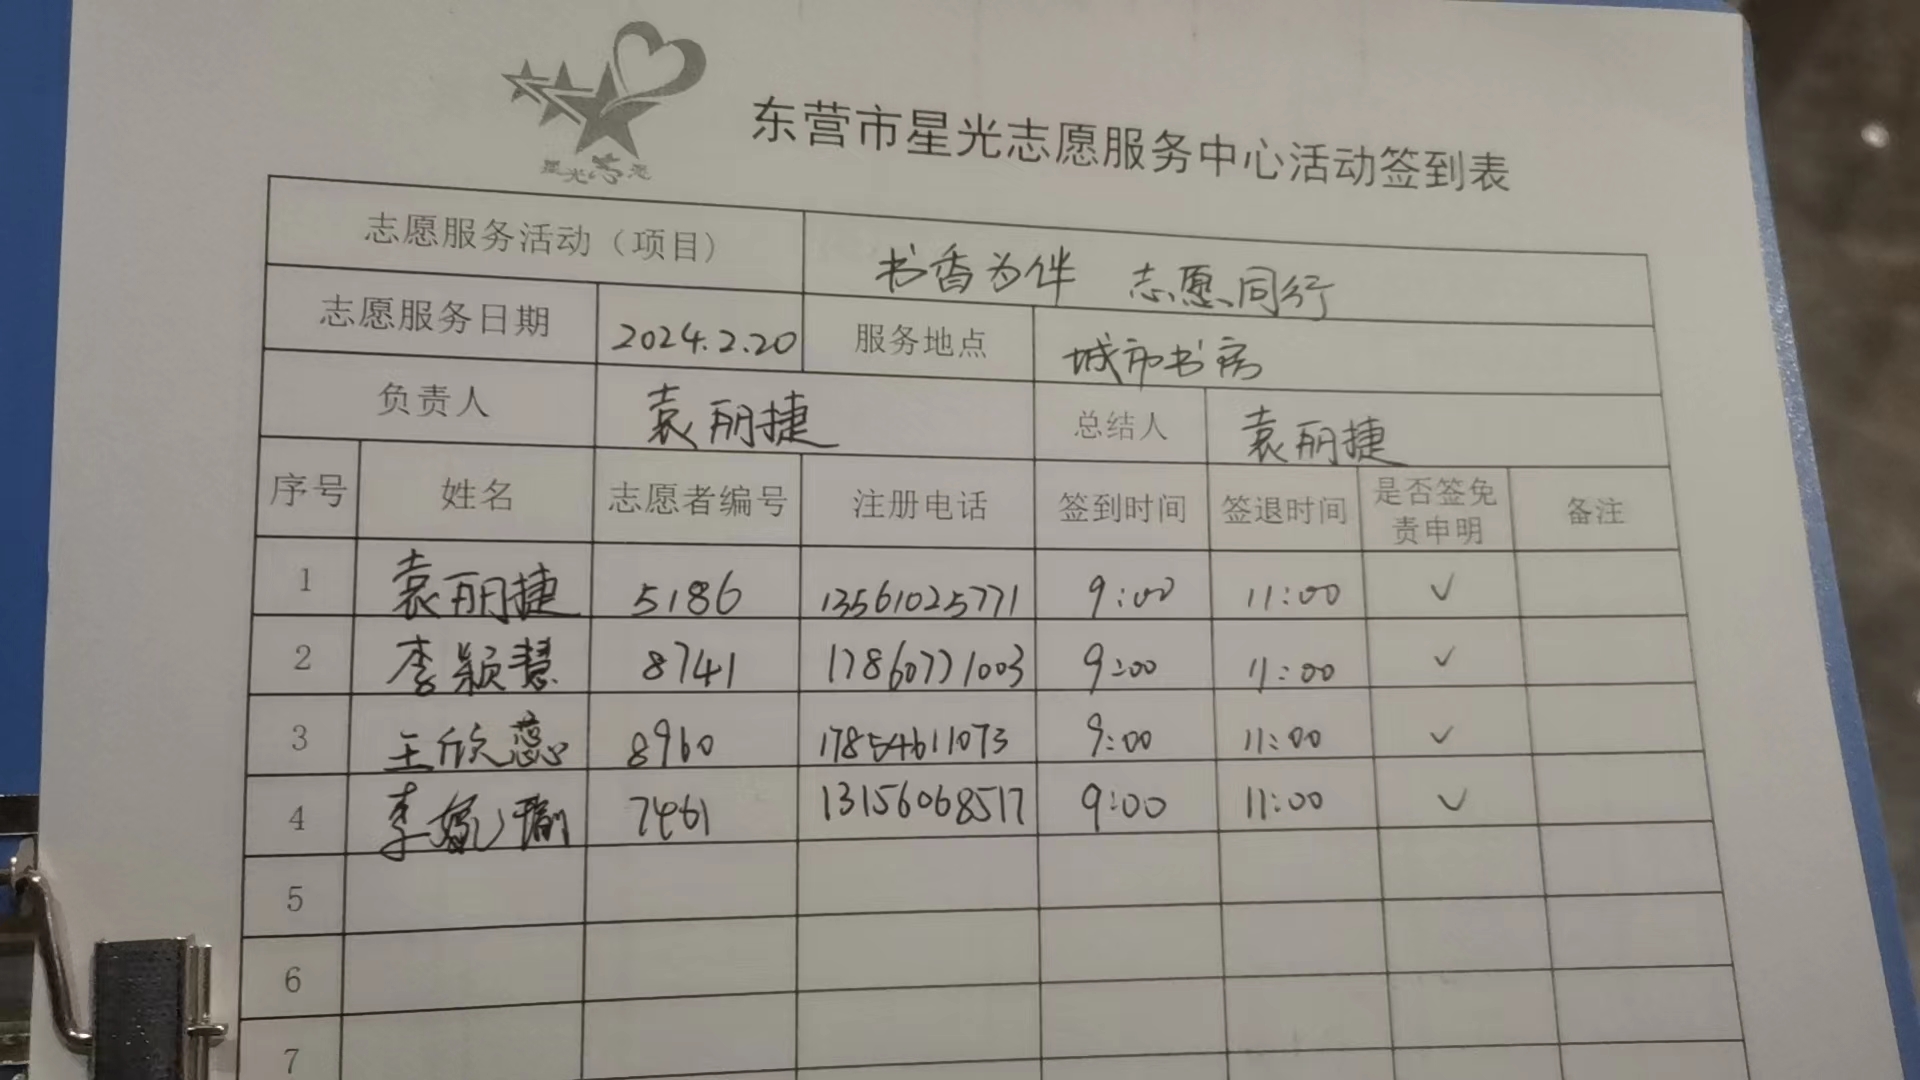 星光志愿
东营市星光志愿服务中心活动签到表
志愿服务活动（项目） 书香为伴 志愿同行
志愿服务日期 2024.2.20 服务地点 城市书房
负责人 袁丽捷 总结人 袁丽捷
序号 姓名 志愿者编号 注册电话 签到时间 签退时间 是否签免责申明 备注
1 袁丽捷 5186 13561025771 9:00 11:00 ✓
2 李颖慧 8741 17860771003 9:00 11:00 ✓
3 王欣蕊 8960 17854611073 9:00 11:00 ✓
4 李 7461 13156068517 9:00 11:00 ✓
5
6
7